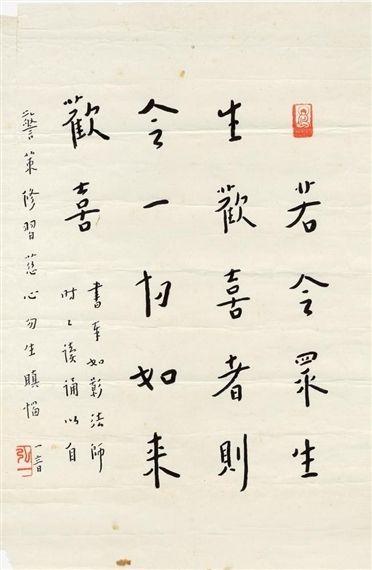 若令眾生
生歡喜者則
令一切如來
歡喜
書奉如影法師
时々讀誦以自
警策修習慈心勿生瞋惱 一音
弘一